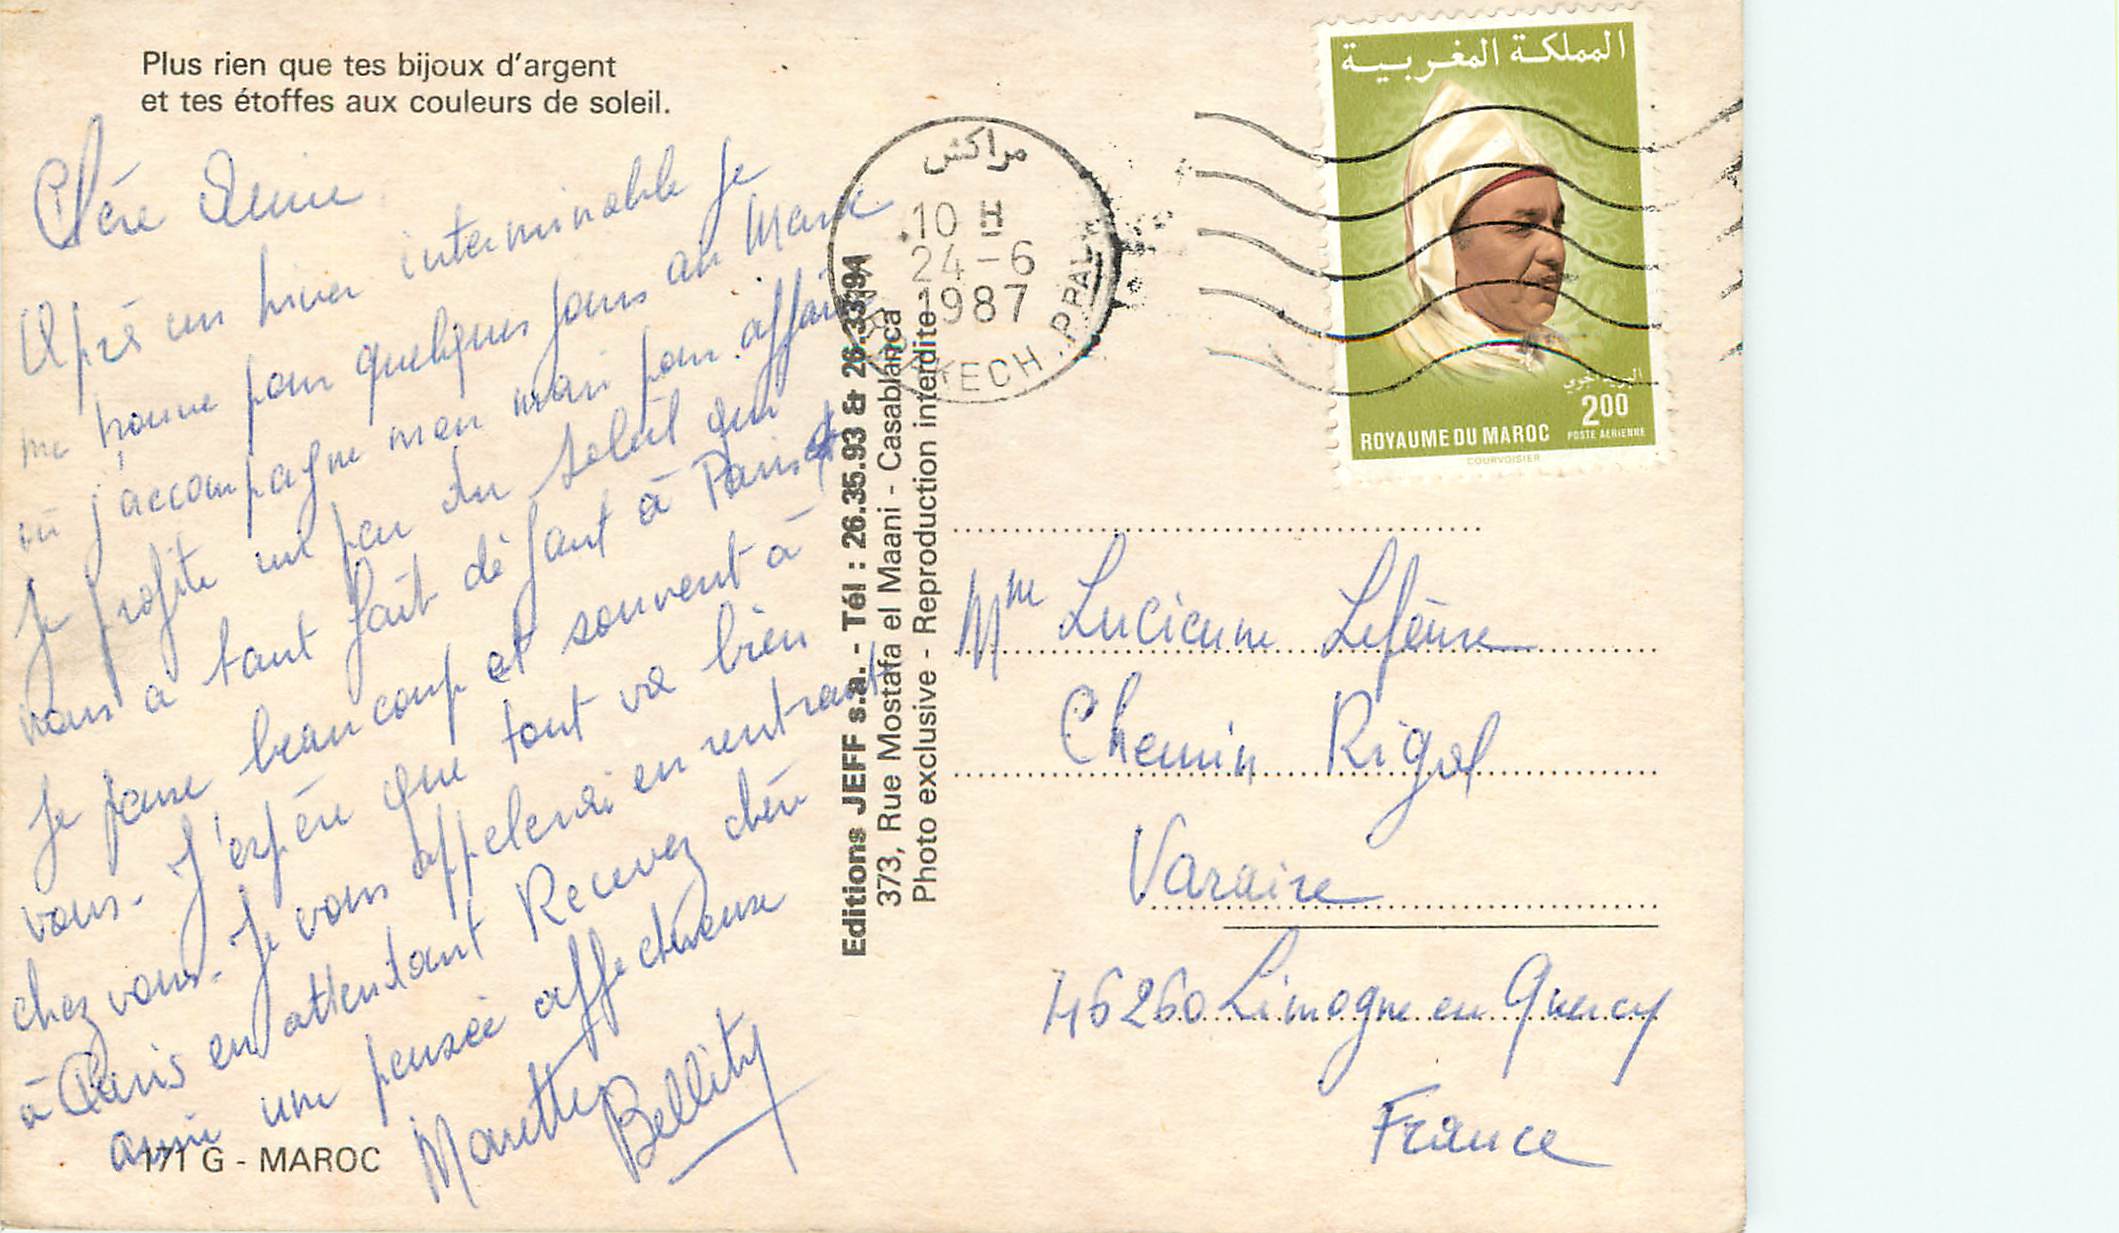 Plus rien que tes bijoux d'argent
et tes étoffes aux couleurs de soleil.
Chère
Après un hiver interminable je
me trouve pour quelques jours au Maroc
où j'accompagne mon mari pour affaires
Je profite un peu du soleil qui
nous a tant fait défaut à Paris
Je pense beaucoup et souvent à
vous. J'espère que tout va bien
chez vous. Je vous appellerai en rentrant
à Paris en attendant Recevez chère
amie une pensée affectueuse
Bellity
171 G - MAROC
Editions JEFF s.a. - Tél : 26.35.93 & 26.33.94
373, Rue Mostafa el Maani - Casablanca
Photo exclusive - Reproduction interdite
مراكش
10 H
24-6
1987
MARRAKECH.PPAL
المملكة المغربية
البريد الجوي
200
ROYAUME DU MAROC POSTE AERIENNE
COURVOISIER
Mme Lucienne
Chemin Rigal
Varaire
46260 Limogne en Quercy
France